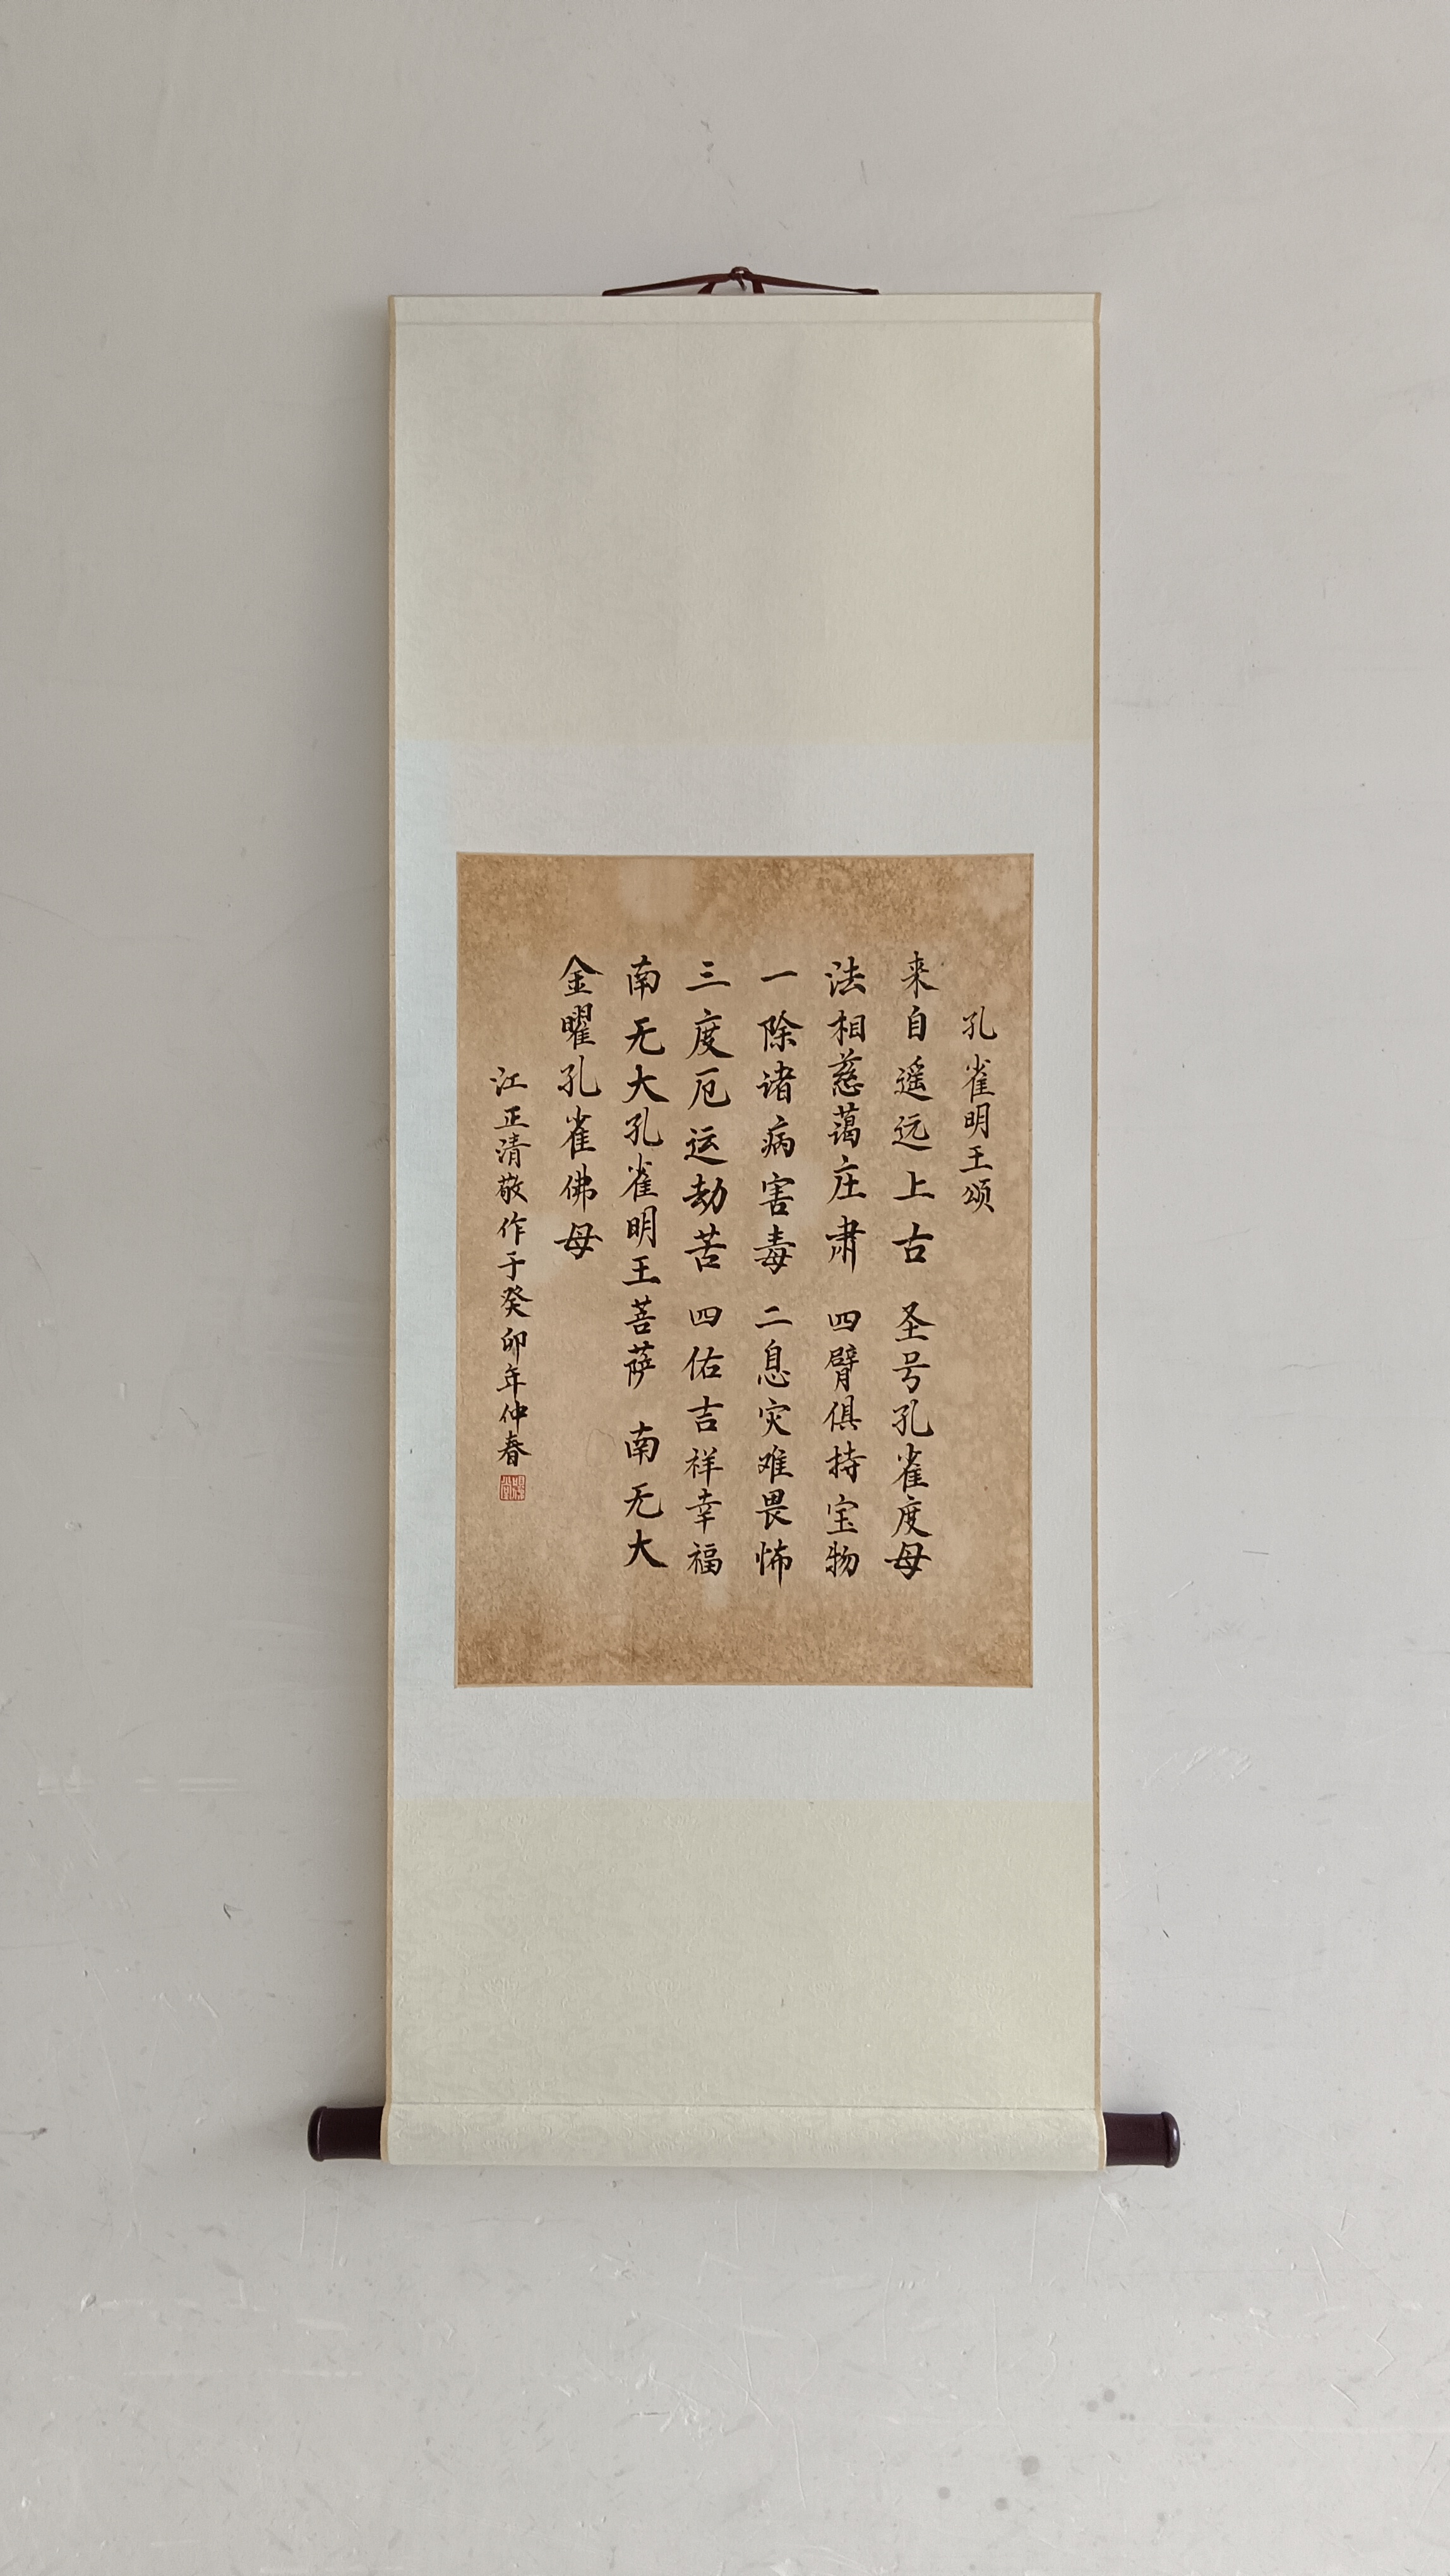 孔雀明王颂
来自遥远上古 圣号孔雀度母
法相慈蔼庄肃 四臂俱持宝物
一除诸病害毒 二息灾难畏怖
三度厄运劫苦 四佑吉祥幸福
南无大孔雀明王菩萨 南无大
金曜孔雀佛母
江正清敬作于癸卯年仲春